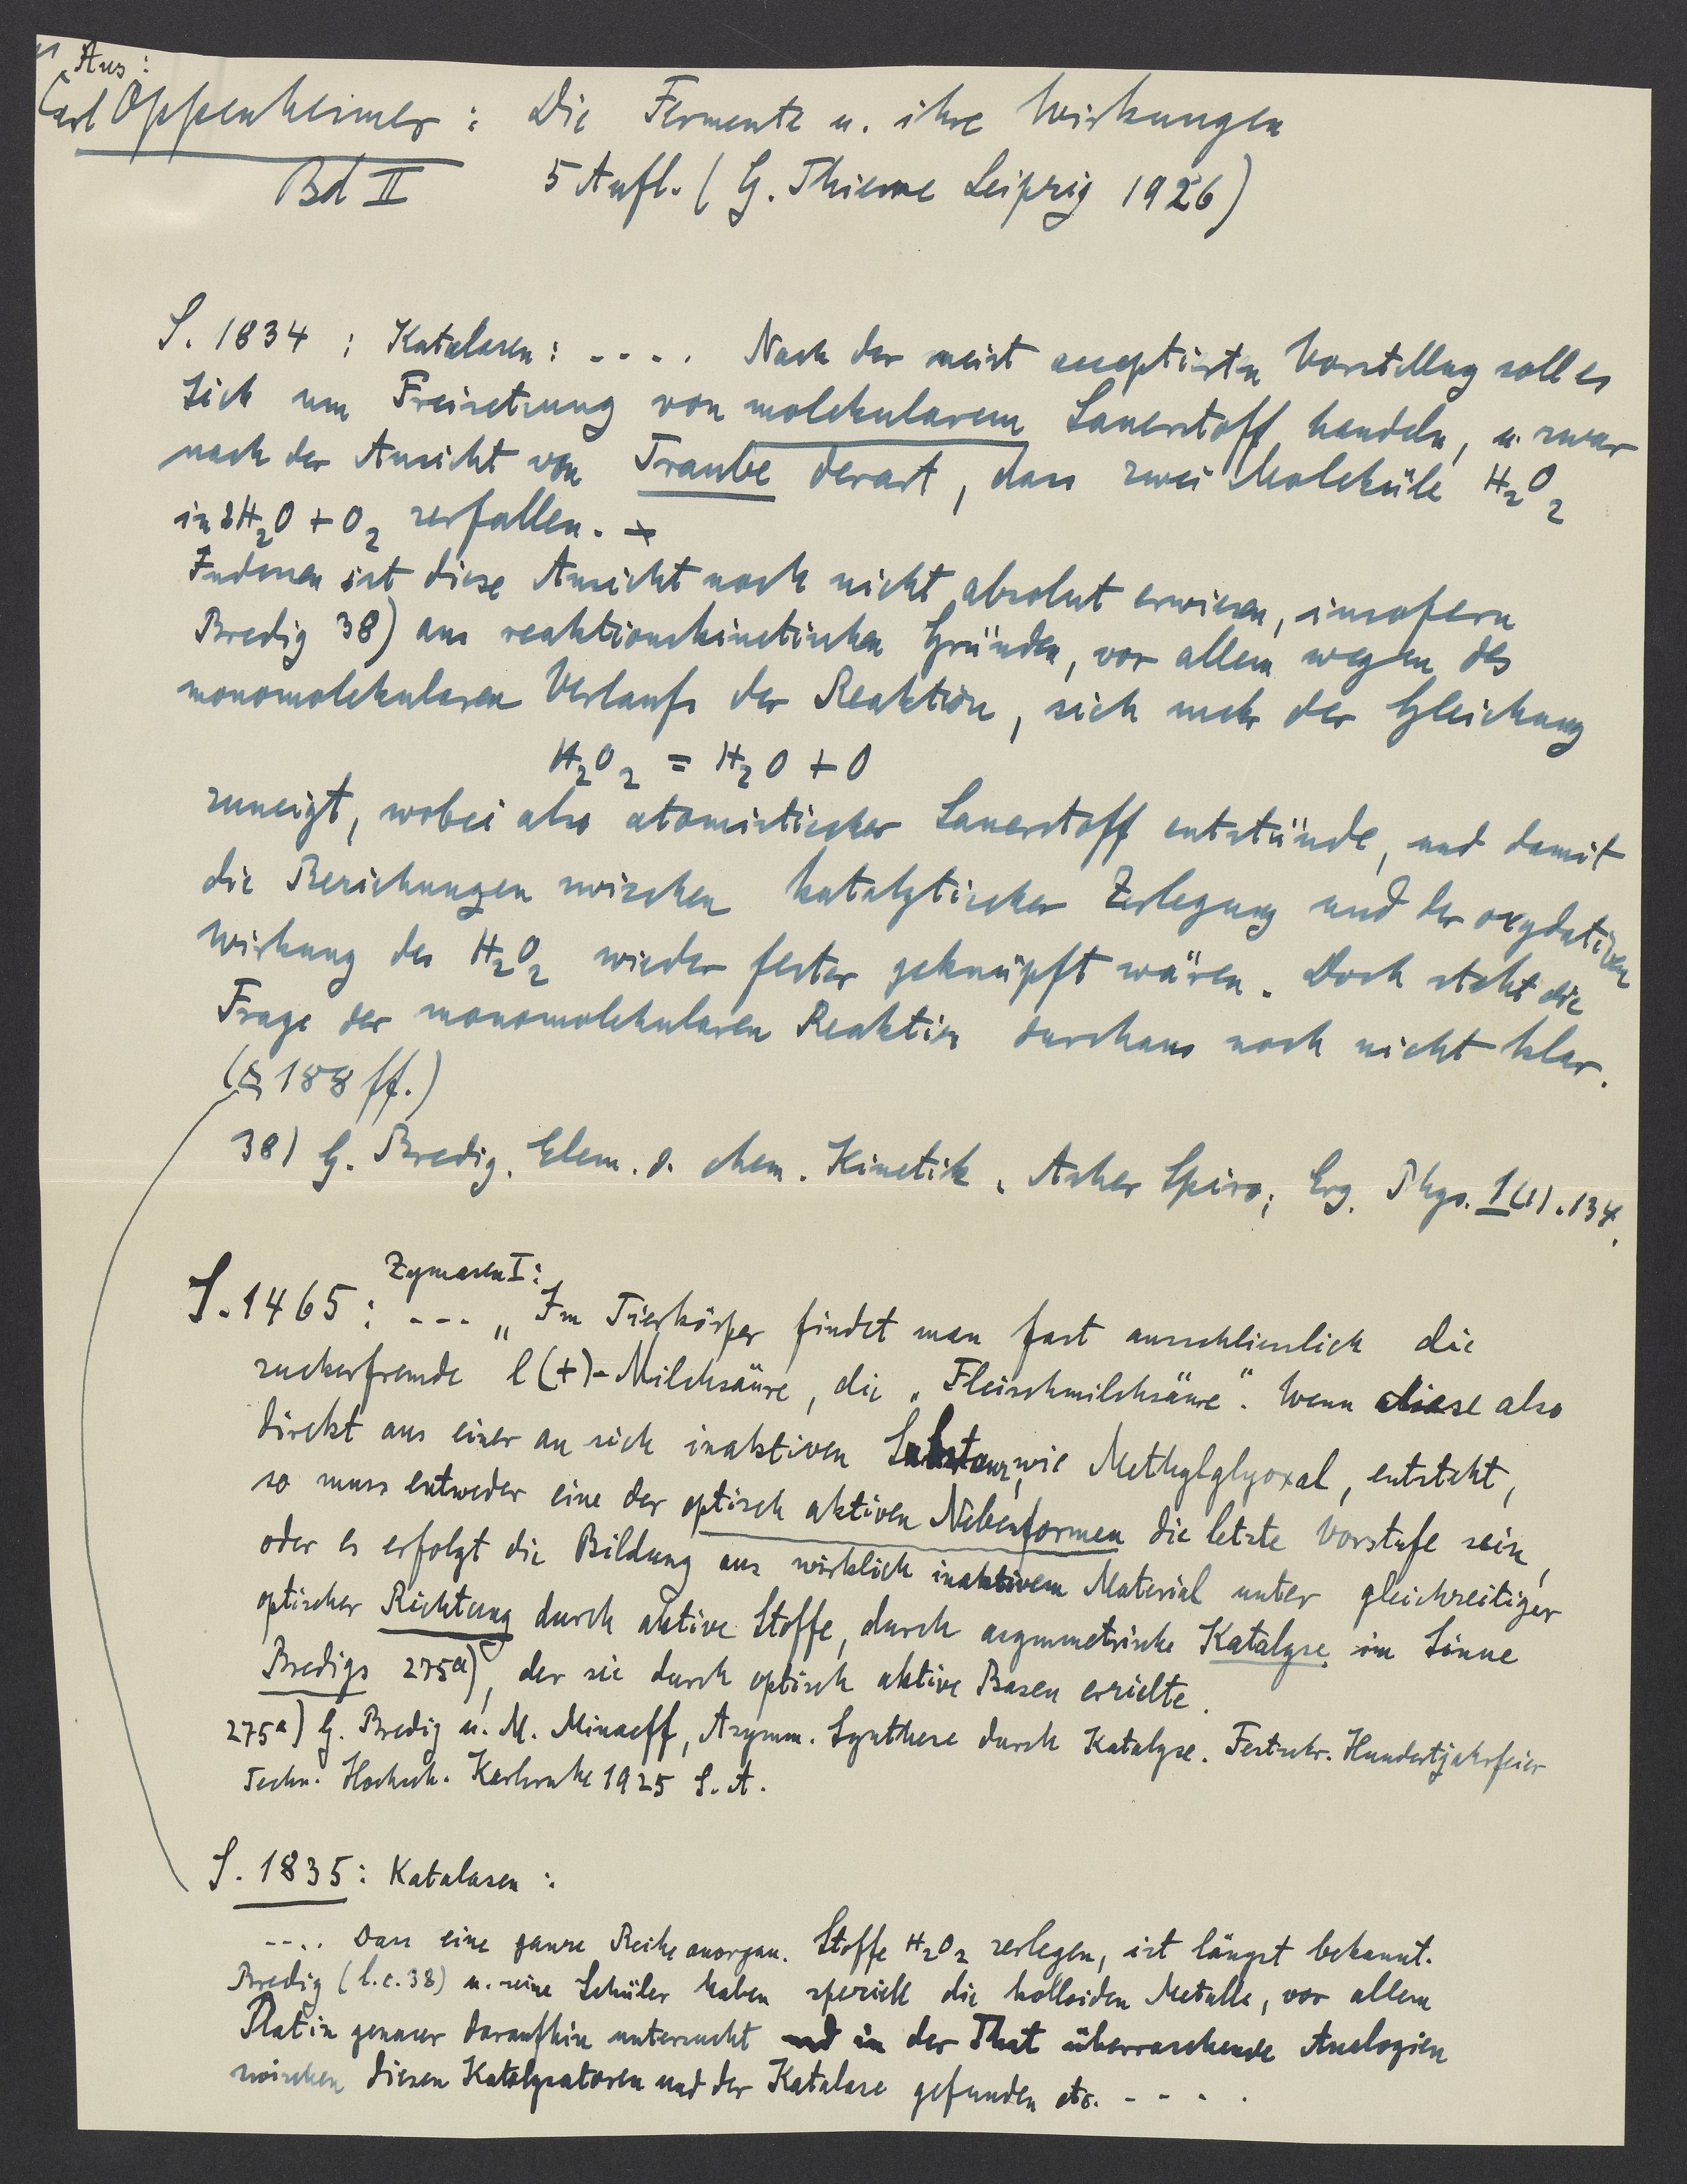 Aus:
Carl Oppenheimer: Die Fermente u. ihre Wirkungen
Bd II 5 Aufl. (G. Thieme Leipzig 1926)
S. 1834 : Katalasen: .... Nach der meist acceptierten Vorstellung soll es
sich um Freisetzung von molekularem Sauerstoff handeln, u. zwar
nach der Ansicht von Traube derart, dass zwei Moleküle H2O2
in 2H2O + O2 zerfallen.
Indessen ist diese Ansicht noch nicht absolut erwiesen, insofern
Bredig 38) aus reaktionskinetischen Gründen, vor allem wegen des
monomolekularen Verlaufs der Reaktion, sich mehr der Gleichung
H2O2 = H2O + O
zuneigt, wobei also atomistischer Sauerstoff entstünde, und damit
die Beziehungen zwischen katalytischer Zerlegung und der oxydativen
Wirkung des H2O2 wieder fester geknüpft wären. Doch steht die
Frage der monomolekularen Reaktion durchaus noch nicht klar.
(S 188 ff.)
38) G. Bredig. Elem. d. chem. Kinetik, Asher Spiro; Erg. Phys. 1 (1). 134.
Zymasen I:
S. 1465: --- „Im Tierkörper findet man fast ausschliesslich die
zuckerfremde l(+)-Milchsäure, die „Fleischmilchsäure". Wenn diese also
direkt aus einer an sich inaktiven Substanz, wie Methylglyoxal, entsteht,
so muss entweder eine der optisch aktiven Nebenformen die letzte Vorstufe sein,
oder es erfolgt die Bildung aus wirklich inaktivem Material unter gleichzeitiger
optischer Richtung durch aktive Stoffe, durch asymmetrische Katalyse im Sinne
Bredigs 275a), der sie durch optisch aktive Basen erzielte.
275a) G. Bredig u. M. Minaeff, Asymm. Synthese durch Katalyse. Festschr. Hundertjahrfeier
Techn. Hochsch. Karlsruhe 1925 S. A.
S. 1835: Katalasen:
.... Dass eine ganze Reihe anorgan. Stoffe H2O2 zerlegen, ist längst bekannt.
Bredig (l.c. 38) u. seine Schüler haben speziell die kolloiden Metalle, vor allem
Platin genauer daraufhin untersucht und in der That überraschende Analogien
zwischen diesen Katalysatoren und der Katalase gefunden etc. - - - .